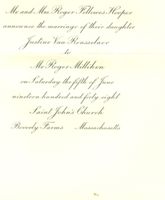 Mr. and Mrs. Roger Fellowes Hooper
announce the marriage of their daughter
Justine Van Rensselaer
to
Mr. Roger Milliken
on Saturday the fifth of June
nineteen hundred and forty eight
Saint John's Church
Beverly Farms Massachusetts